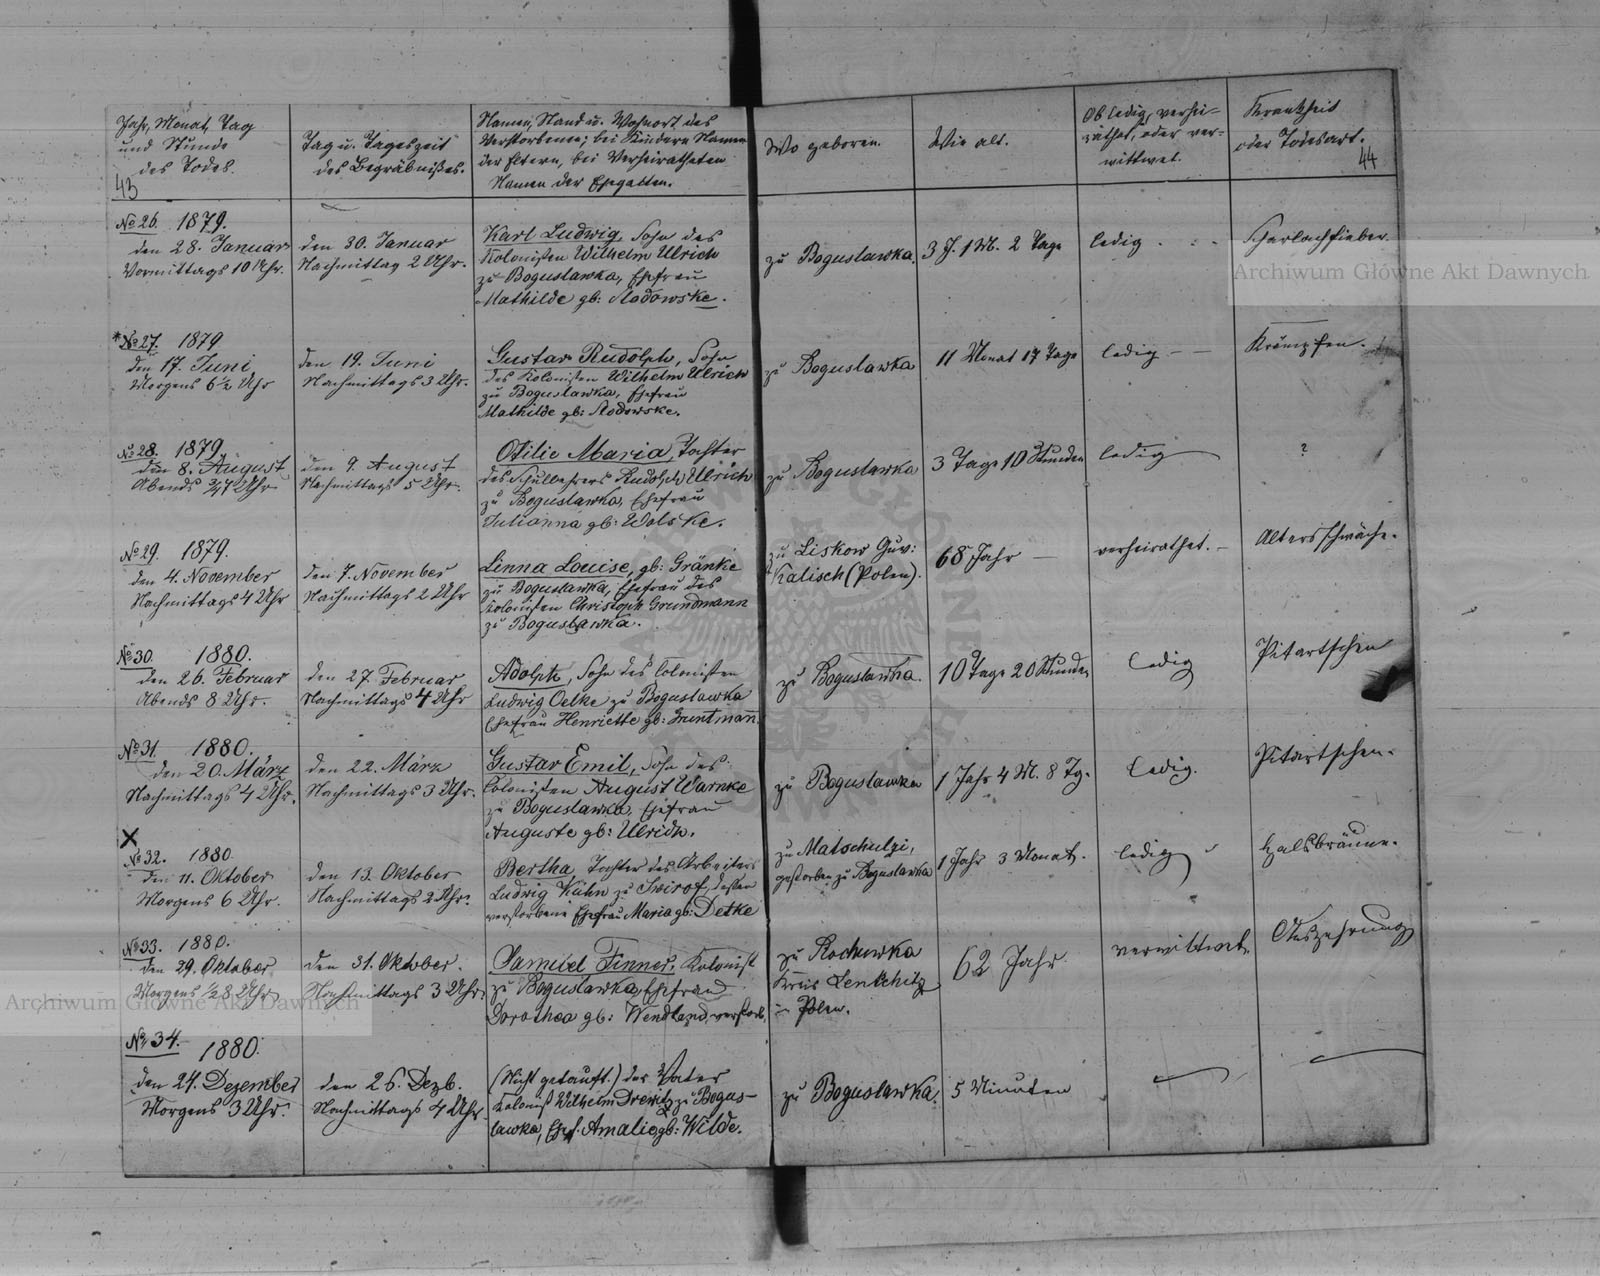 Jahr, Monat, Tag
und Stunde
des Todes.
43
Tag u. Tageszeit
des Begräbnißes.
Namen, Stand u. Wohnort des
Verstorbenen; bei Kindern Namen
der Eltern, bei Verheiratheten
Namen der Ehegatten.
Wo geboren.
Wie alt.
Ob ledig, verhei-
rathet, oder ver-
wittwet.
Krankheit
oder Todesart.
44
No 26. 1879.
den 28. Januar
Vormittags 10 Uhr.
den 30. Januar
Nachmittag 2 Uhr.
Karl Ludwig, Sohn des
Kolonisten Wilhelm Ulrich
zu Boguslawka, Ehefrau
Mathilde gb: Rodowske.
zu Boguslawka.
3 J. 1 M. 2 Tage
ledig
Scharlachfieber.
No 27. 1879
den 17. Juni
Morgens 6½ Uhr
den 19. Juni
Nachmittags 3 Uhr.
Gustav Rudolph, Sohn
des Kolonisten Wilhelm Ulrich
zu Boguslawka, Ehefrau
Mathilde gb: Rodowske.
zu Boguslawka
11 Monat 17 Tage
ledig
Krämpfen.
No 28. 1879.
den 8. August
Abends ¾7 Uhr
den 9. August
Nachmittags 5 Uhr.
Otilie Maria, Tochter
des Schullehrers Rudolph Ulrich
zu Boguslawka, Ehefrau
Julianna gb: Wolske.
zu Boguslawka
3 Tage 10 Stunden
ledig
?
No 29. 1879.
den 4. November
Nachmittags 4 Uhr
den 7. November
Nachmittags 2 Uhr
Linna Louise, gb: Gränke
zu Boguslawka, Ehefrau des
Kolonisten Christoph Grundmann
zu Boguslawka.
zu Liskow Guv:
Kalisch (Polen).
68 Jahr
verheirathet.
Altersschwäche.
No 30. 1880.
den 26. Februar
Abends 8 Uhr.
den 27. Februar
Nachmittags 4 Uhr
Adolph, Sohn des Colonisten
Ludwig Oelke zu Boguslawka
Ehefrau Henriette gb: Gruntmann.
zu Boguslawka.
10 Tage 20 Stunden
ledig
Pitartschen
No 31. 1880.
den 20. März
Nachmittags 4 Uhr.
den 22. März
Nachmittags 3 Uhr.
Gustav Emil, Sohn des
Colonisten August Warnke
zu Boguslawka, Ehefrau
Auguste gb: Ulrich.
zu Boguslawka
1 Jahr 4 M. 8 Tg.
ledig.
Pitartschen.
No 32. 1880
den 11. Oktober
Morgens 6 Uhr.
den 13. Oktober
Nachmittags 2 Uhr.
Bertha, Tochter des Arbeiters
Ludwig Kühn zu Swirof, dessen
verstorbene Ehefrau Maria gb: Detke
zu Matschulzi,
gestorben zu Boguslawka
1 Jahr 3 Monat.
ledig
Halsbräune.
No 33. 1880.
den 29. Oktober
Morgens ½8 Uhr
den 31. Oktober.
Nachmittags 3 Uhr.
Samuel Finner, Kolonist
zu Boguslawka, Ehefrau
Dorothea gb: Wendland, verstorb.
zu Rochuwka
Kreis Lentschitz
in Polen.
62 Jahr
verwittwet.
Auszehrung
No 34. 1880.
den 24. Dezember
Morgens 3 Uhr.
den 26. Dezb.
Nachmittags 4 Uhr
(Nicht getauft.) der Vater
Kolonist Wilhelm Drewitz zu Bogus-
lawka, Ehef. Amalie gb: Wilde.
zu Boguslawka,
5 Minuten
Archiwum Główne Akt Dawnych
Archiwum Główne Akt Dawnych